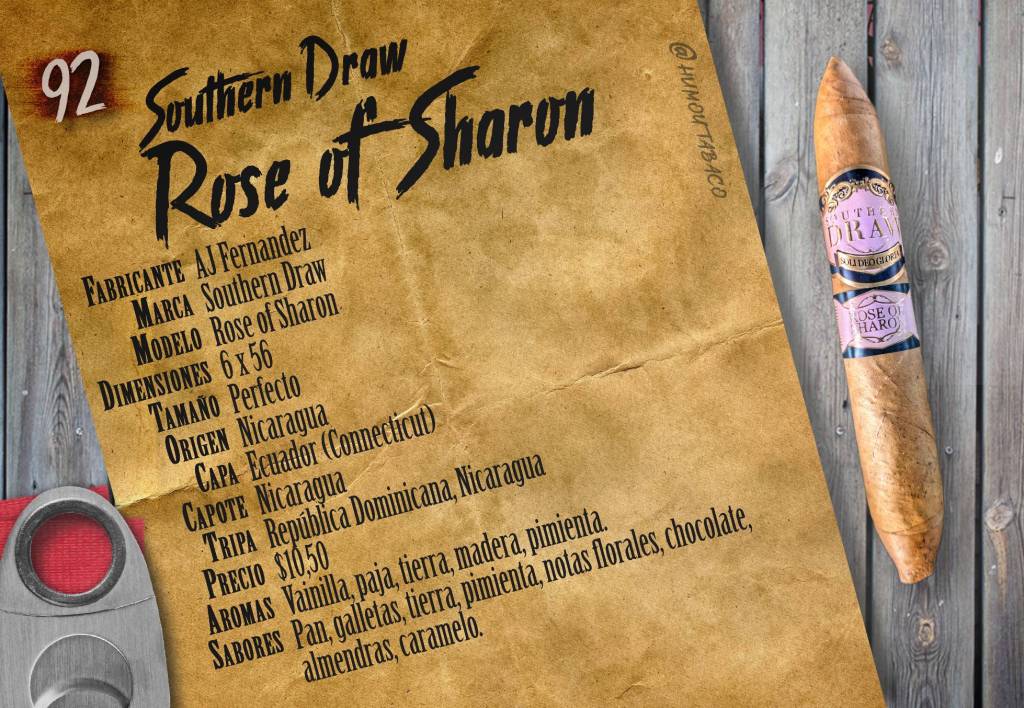 92
Southern Draw
Rose of Sharon
@HUMOYTABACO
FABRICANTE AJ Fernandez
MARCA Southern Draw
MODELO Rose of Sharon
DIMENSIONES 6 x 56
TAMAÑO Perfecto
ORIGEN Nicaragua
CAPA Ecuador (Connecticut)
CAPOTE Nicaragua
TRIPA República Dominicana, Nicaragua
PRECIO $10,50
AROMAS Vainilla, paja, tierra, madera, pimienta.
SABORES Pan, galletas, tierra, pimienta, notas florales, chocolate,
almendras, caramelo.
SOUTHE
DRAW
SOLI DEO GLORIA
ROSE OF
SHARO